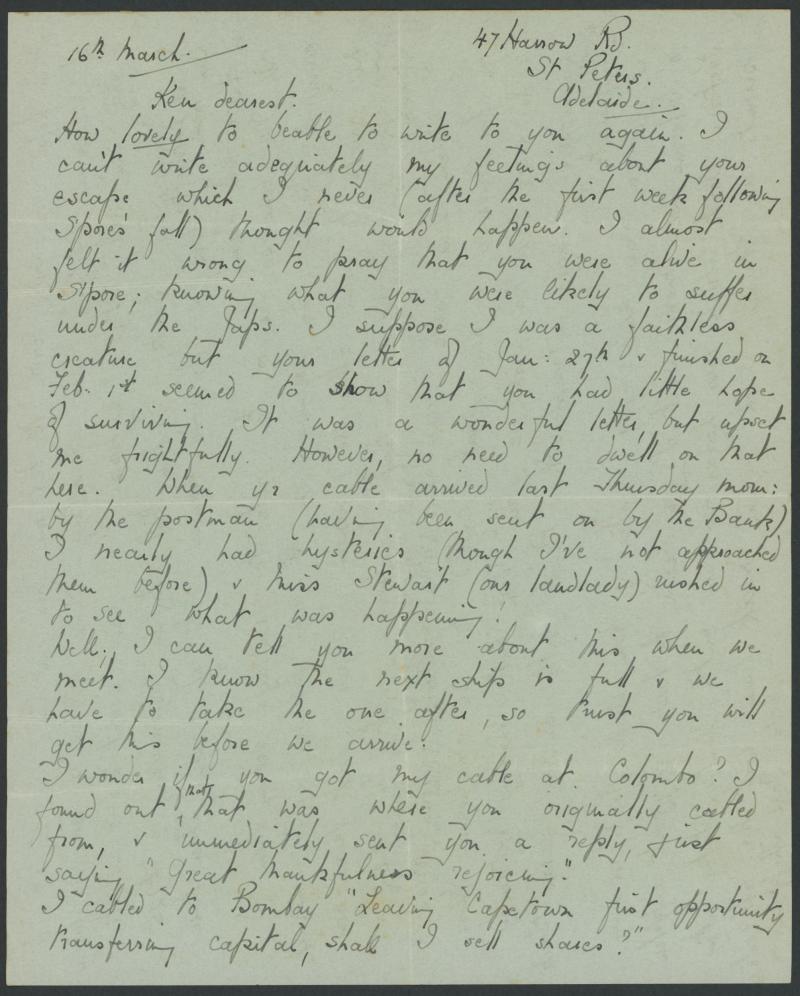 16th March.
47 Harrow Rd.
St Peters.
Adelaide.
Ken dearest.
How lovely to beable to write to you again. I
can't write adequately my feelings about your
escape which I never (after the first week following
S'pore's fall) thought would happen. I almost
felt it wrong to pray that you were alive in
S'pore; knowing what you were likely to suffer
under the Japs. I suppose I was a faithless
creature but your letter of Jan: 27th & finished on
Feb. 1st seemed to show that you had little hope
of surviving. It was a wonderful letter, but upset
me frightfully. However, no need to dwell on that
here. When yr cable arrived last Thursday morn:
by the postman (having been sent on by the Bank)
I nearly had hysterics (though I've not approached
them before) & Miss Stewart (our landlady) rushed in
to see what was happening!
Well, I can tell you more about this when we
meet. I know the next ship is full & we
have to take the one after, so trust you will
get this before we arrive.
I wonder if you got my cable at Colombo? I
found out that that was where you originally cabled
from, & immediately sent you a reply, just
saying "Great thankfulness rejoicing."
I cabled to Bombay "Leaving Capetown first opportunity
transferring capital, shall I sell shares?"